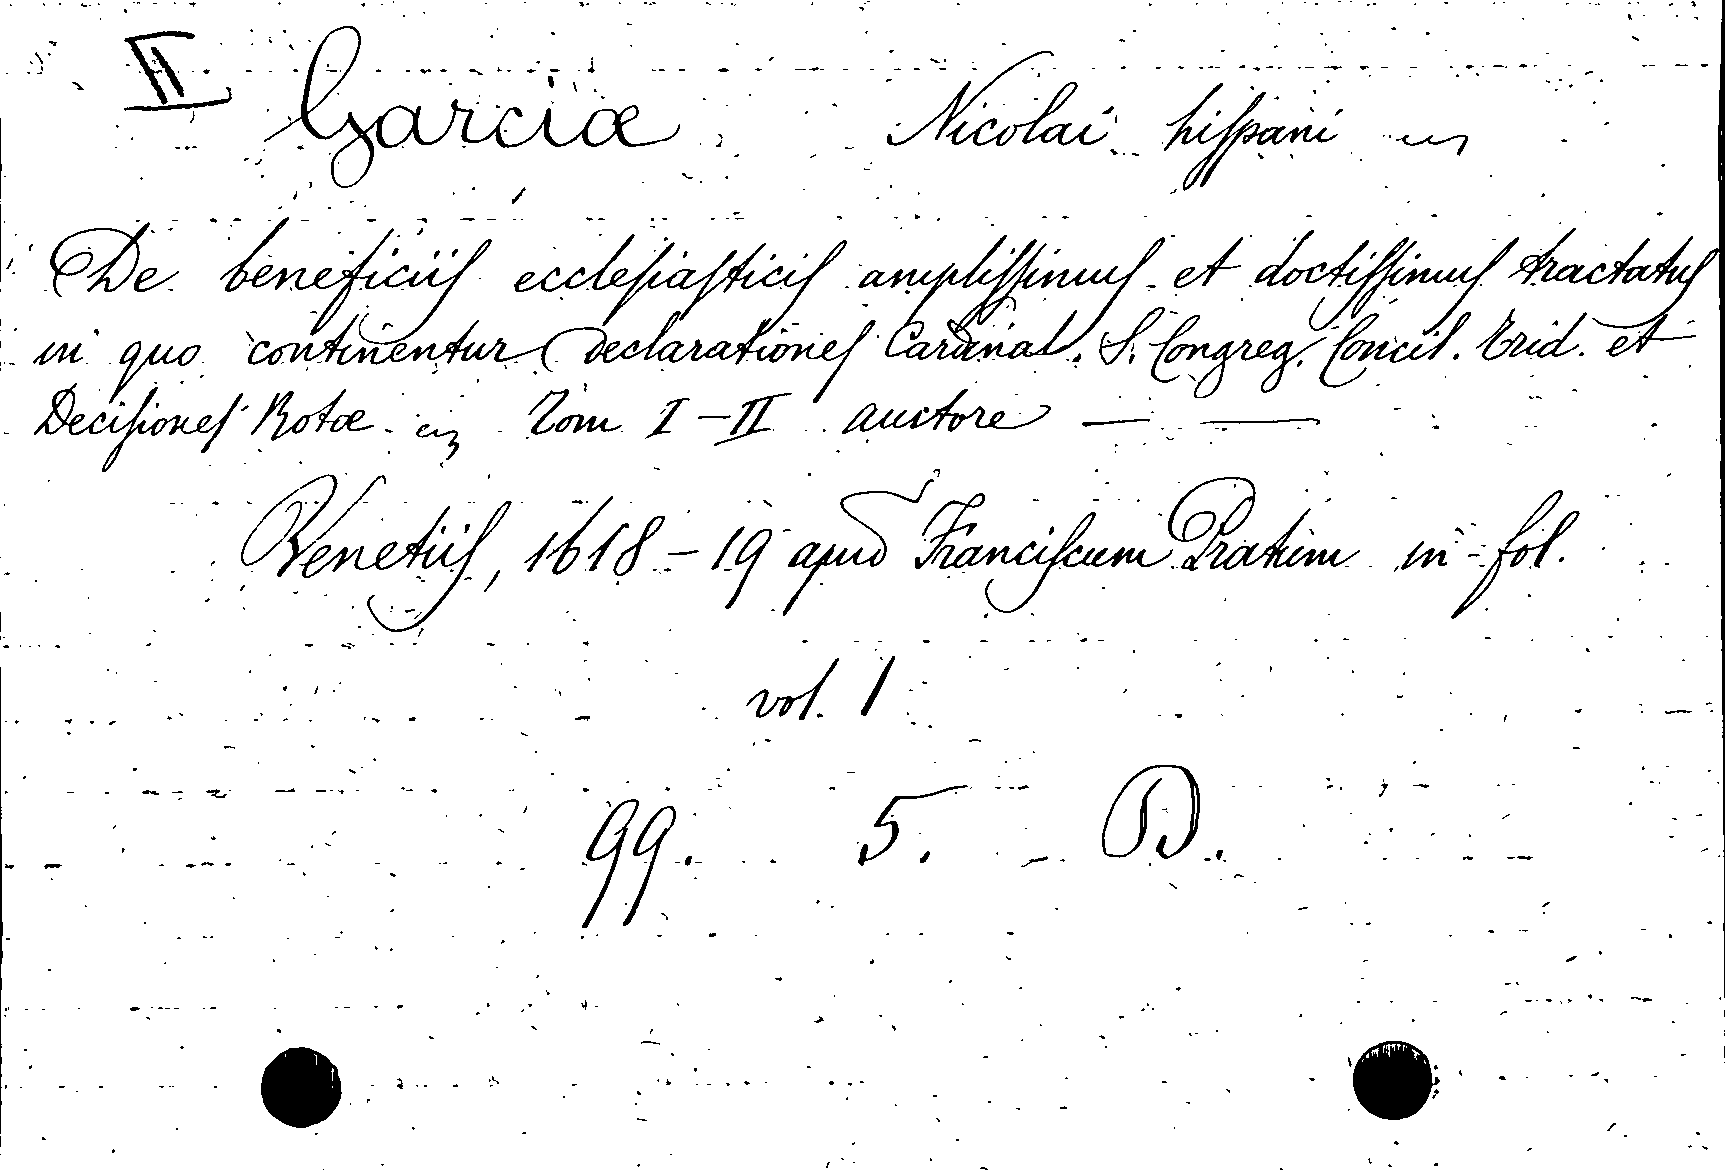 II Garciæ Nicolai hiſpani
De beneficiiſ eccleſiaſticiſ ampliſſimuſ et doctiſſimuſ tractatuſ
in quo continentur declarationeſ Cardinal. S. Congreg. Concil. Trid. et
Deciſioneſ Rotæ Tom I-II auctore — —
Venetiiſ, 1618-19 apud Franciſcum Pratum in-fol.
vol. 1
99. 5. D.